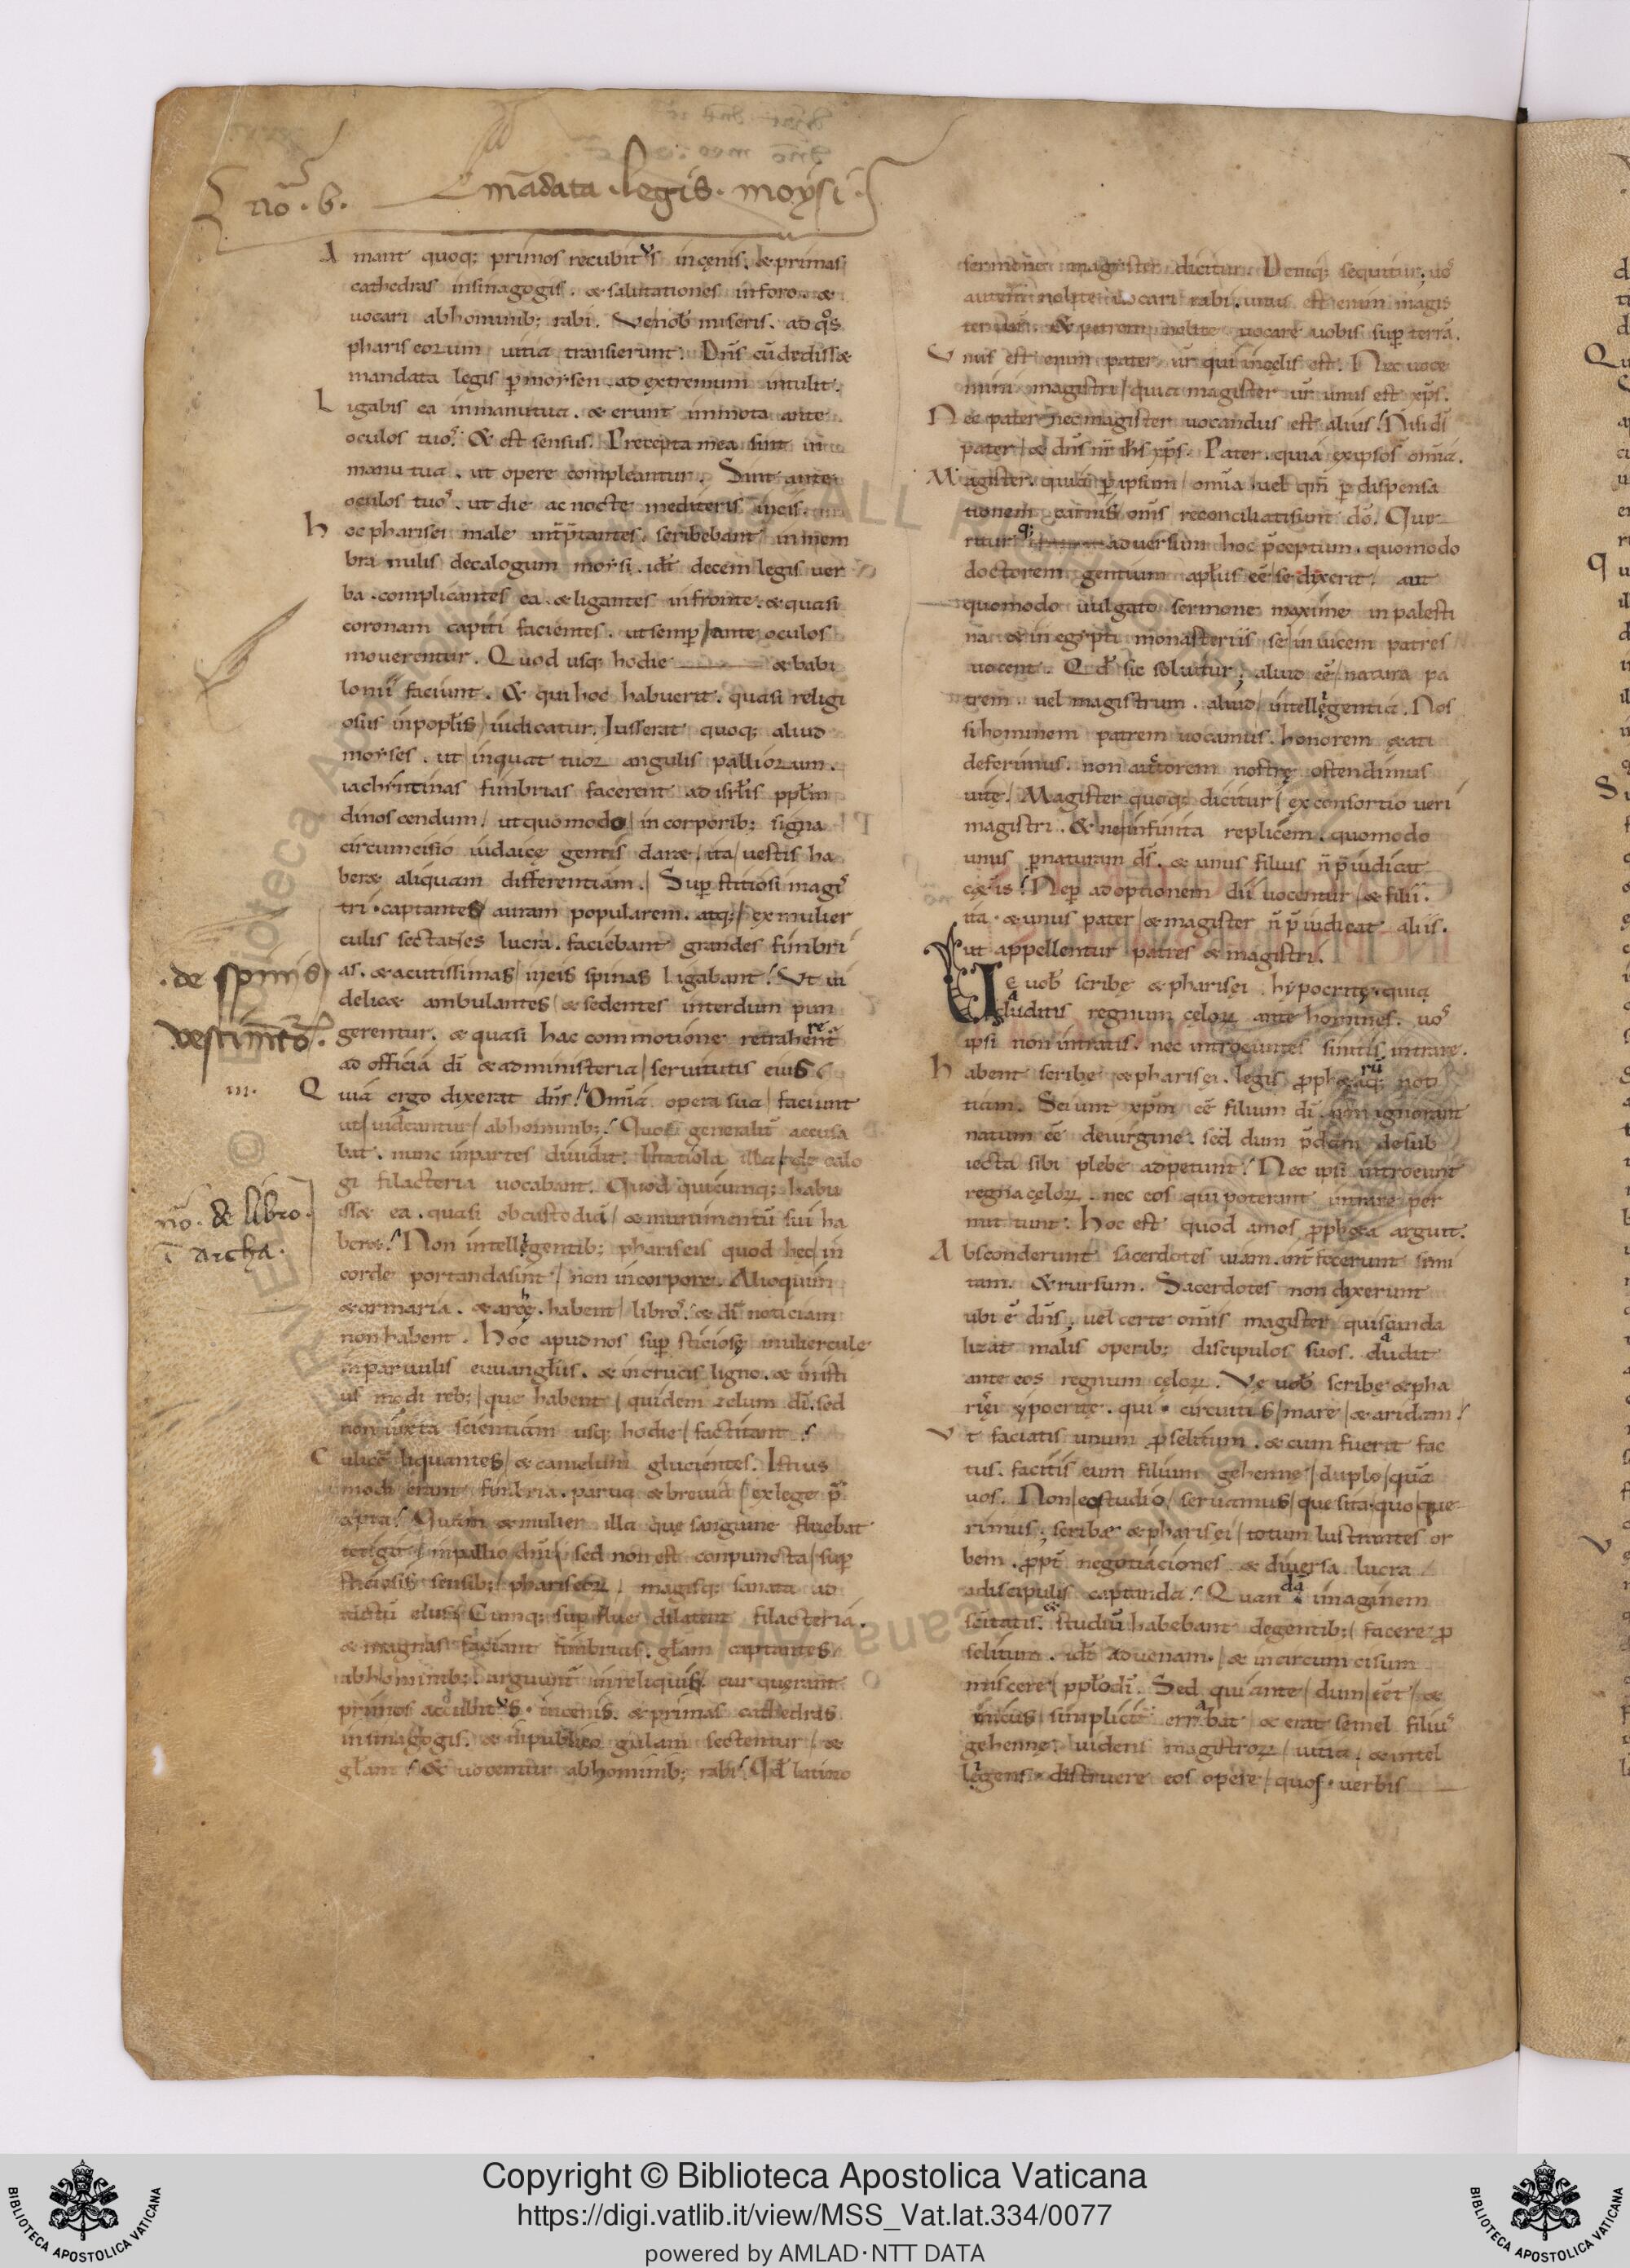 nō. b. mādata legis moysi
Amant quoq; primos recubitꝰs incenis. & primas
cathedras insinagogis. & salutationes inforo. &
uocari abhominib; rabi. Ve nob miseris. ad qͦs
phariseorum uitia transierunt. Dn̄s cū dediss&
mandata legis ꝑmoysen. ad extremum intulit.
Ligabis ea inmanu tua. & erunt inmota ante
oculos tuoˢ. & est sensus. Precepta mea sint in
manu tua. ut opere compleantur. Sint ante
oculos tuoˢ. ut die ac nocte mediteris ineis.
hoc pharisei male int̄p̄tantes. scribebant in mem
branulis decalogum moysi. idē decem legis uer
ba. complicantes ea. & ligantes infronte. & quasi
coronam capiti facientes. ut semꝑ ante oculos
mouerentur. Quod usq; hodie & babi
lonii faciunt. & qui hoc habuerit. quasi religi
osus inpopl̄is iudicatur. Iusserat quoq; aliud
moyses. ut inquat tuor angulis palliorum.
iachintinas fimbrias facerent ad isrl̄is ppl̄m
dinoscendum. ut quomodo in corporib; signa
circumcisio iudaice gentis dar&. ita uestis ha
ber& aliquam differentiam. Suꝑstitiosi magiˢ
tri. captantes auram popularem. atq; ex mulier
culis sectantes lucra. faciebant grandes fimbri
as. & acutissimas ineis spinas ligabant. Vt ui
delic& ambulantes & sedentes interdum pun
gerentur. & quasi hac commotione retraherent
ad officia dī & ad ministeria seruitutis eius
Quia ergo dixerat dn̄s. Omīa opera sua faciunt
ut uideantur abhominib; Quos generalit̄ accusa
bat. nunc inpartes diuidit. Pictaciola illa decalo
gi filacteria uocabant. Quod quicumq; habu
iss& ea. quasi ob custodiā & munimentū sui ha
ber&. Non intelligentib; phariseis quod hec in
corde portanda sint non incorpore. Alioquin
& armaria. & arche. habent libroˢ. & dī noticiam
non habent. Hoc apud nos suꝑsticiose muliercule
inparuulis euuangl̄iis. & incrucis ligno. & inisti
us modi reb; que habent quidem zelum dī. sed
non iuxta scientiam usq; hodie factitant
Culicē liquantes & camelum glucientes. Istius
modi erant fimbria. parua & breuia ex lege p̄
cepta. Quam & mulier illa que sanguine fluebat
tetigit inpallio dn̄i sed non est conpuncta suꝑ
sticiosis sensib; phariseoꝝ. magisq; sanata ad
tactū eius. Cumq; suꝑflue dilatent filacteria.
& magnas faciant fimbrias. gl̄am captantes
abhominib; arguunt̄ inreliquis cur querant
primos accubitꝰs incenis. & primas cathedras
insinagogis. & inpublico gulam sectentur &
gl̄am. & uocentur abhominib; rabi. Qd̄ latino
de spinis
vestimētoꝝ.
nō. de libro.
ī archa.
sermone magister dicitur. Deniq; sequitur. uoˢ
autem nolite uocari rabi. unus est enim magis
ter ur̄. & patrem nolite uocare uobis suꝑ terrā.
Vnus est enim pater ur̄ qui incelis est. Nec uoce
mini magistri quia magister ur̄ unus est xp̄s.
Nec pater nec magister uocandus est alius. Nisi dī
pater & dn̄s nr̄ ih̄s xp̄s. Pater. quia ex ipso s̄ omīa.
Magister. quia ꝑ ipsum omīa uel qm̄ ꝑ dispensa
tionem carnis om̄s reconciliati sunt dō. Que
ritur aduersum hoc p̄ceptum. quomodo
doctorem gentium apl̄us eē se dixerit. aut
quomodo uulgato sermone maxime inpalesti
na & in egypti monasteriis se inuicem patres
uocent. Qd̄ sic soluitur; aliud eē natura pa
trem. uel magistrum. aliud intelligentia. Nos
si hominem patrem uocamus. honorem etati
deferimus. non auctorem nostre ostendimus
uite. Magister quoq; dicitur ex consortio ueri
magistri. & ne infinita replicem. quomodo
unus ꝑnaturam ds̄. & unus filius n̄ p̄iudicat
ceteris. Ne ꝑ adoptionem dii uocentur & filii.
ita & unus pater & magister n̄ p̄iudicat aliis.
ut appellentur patres & magistri.
Ve uob scribe & pharisei hypocrite. quia
cluditis regnum celoꝝ ante homines. uoˢ
ipsi non intratis. nec introeuntes sinitis intrare.
Habent scribe & pharisei. legis ꝓph&arūq; noti
tiam. Sciunt xp̄m eē filium dī. non ignorant
natum eē de uirgine. sed dum p̄dam de sub
iecta sibi plebe adpetunt. Nec ipsi introeunt
regna celoꝝ. nec eos qui poterant intrare per
mittunt. Hoc est quod amos ꝓph&a arguit.
Absconderunt sacerdotes uiam. int̄fecerunt simi
tam. & rursum. Sacerdotes non dixerunt
ubi ē dn̄s; uel certe om̄is magister qui scanda
lizat malis operib; discipulos suos. cludit
ante eos regnum celoꝝ. Ve uob scribe & pha
risei ypocrite. qui circuitis mare & aridam.
Vt faciatis unum ꝓselitum. & cum fuerit fac
tus. facitis eum filium gehenne duplo quā
uos. Non eo studio seruamus que sita. quo que
rimus; scribe & pharisei totum lustrantes or
bem. ꝓpt̄ negotiaciones & diuersa lucra
a discipulis captanda. Quandā imaginem
scitatis. studiū habebant degentib; facere ꝓ
selitum. idē aduenam. & incircumcisum
miscere ppl̄o dī. Sed qui ante dum eēt &
nicus simplicit̄ errabat & erat semel filiuˢ
gehenne. uidens magistroꝝ uitia. & intel
ligens distruere eos opere quos uerbis
Copyright © Biblioteca Apostolica Vaticana
https://digi.vatlib.it/view/MSS_Vat.lat.334/0077
powered by AMLAD·NTT DATA
BIBLIOTECA APOSTOLICA VATICANA
BIBLIOTECA APOSTOLICA VATICANA